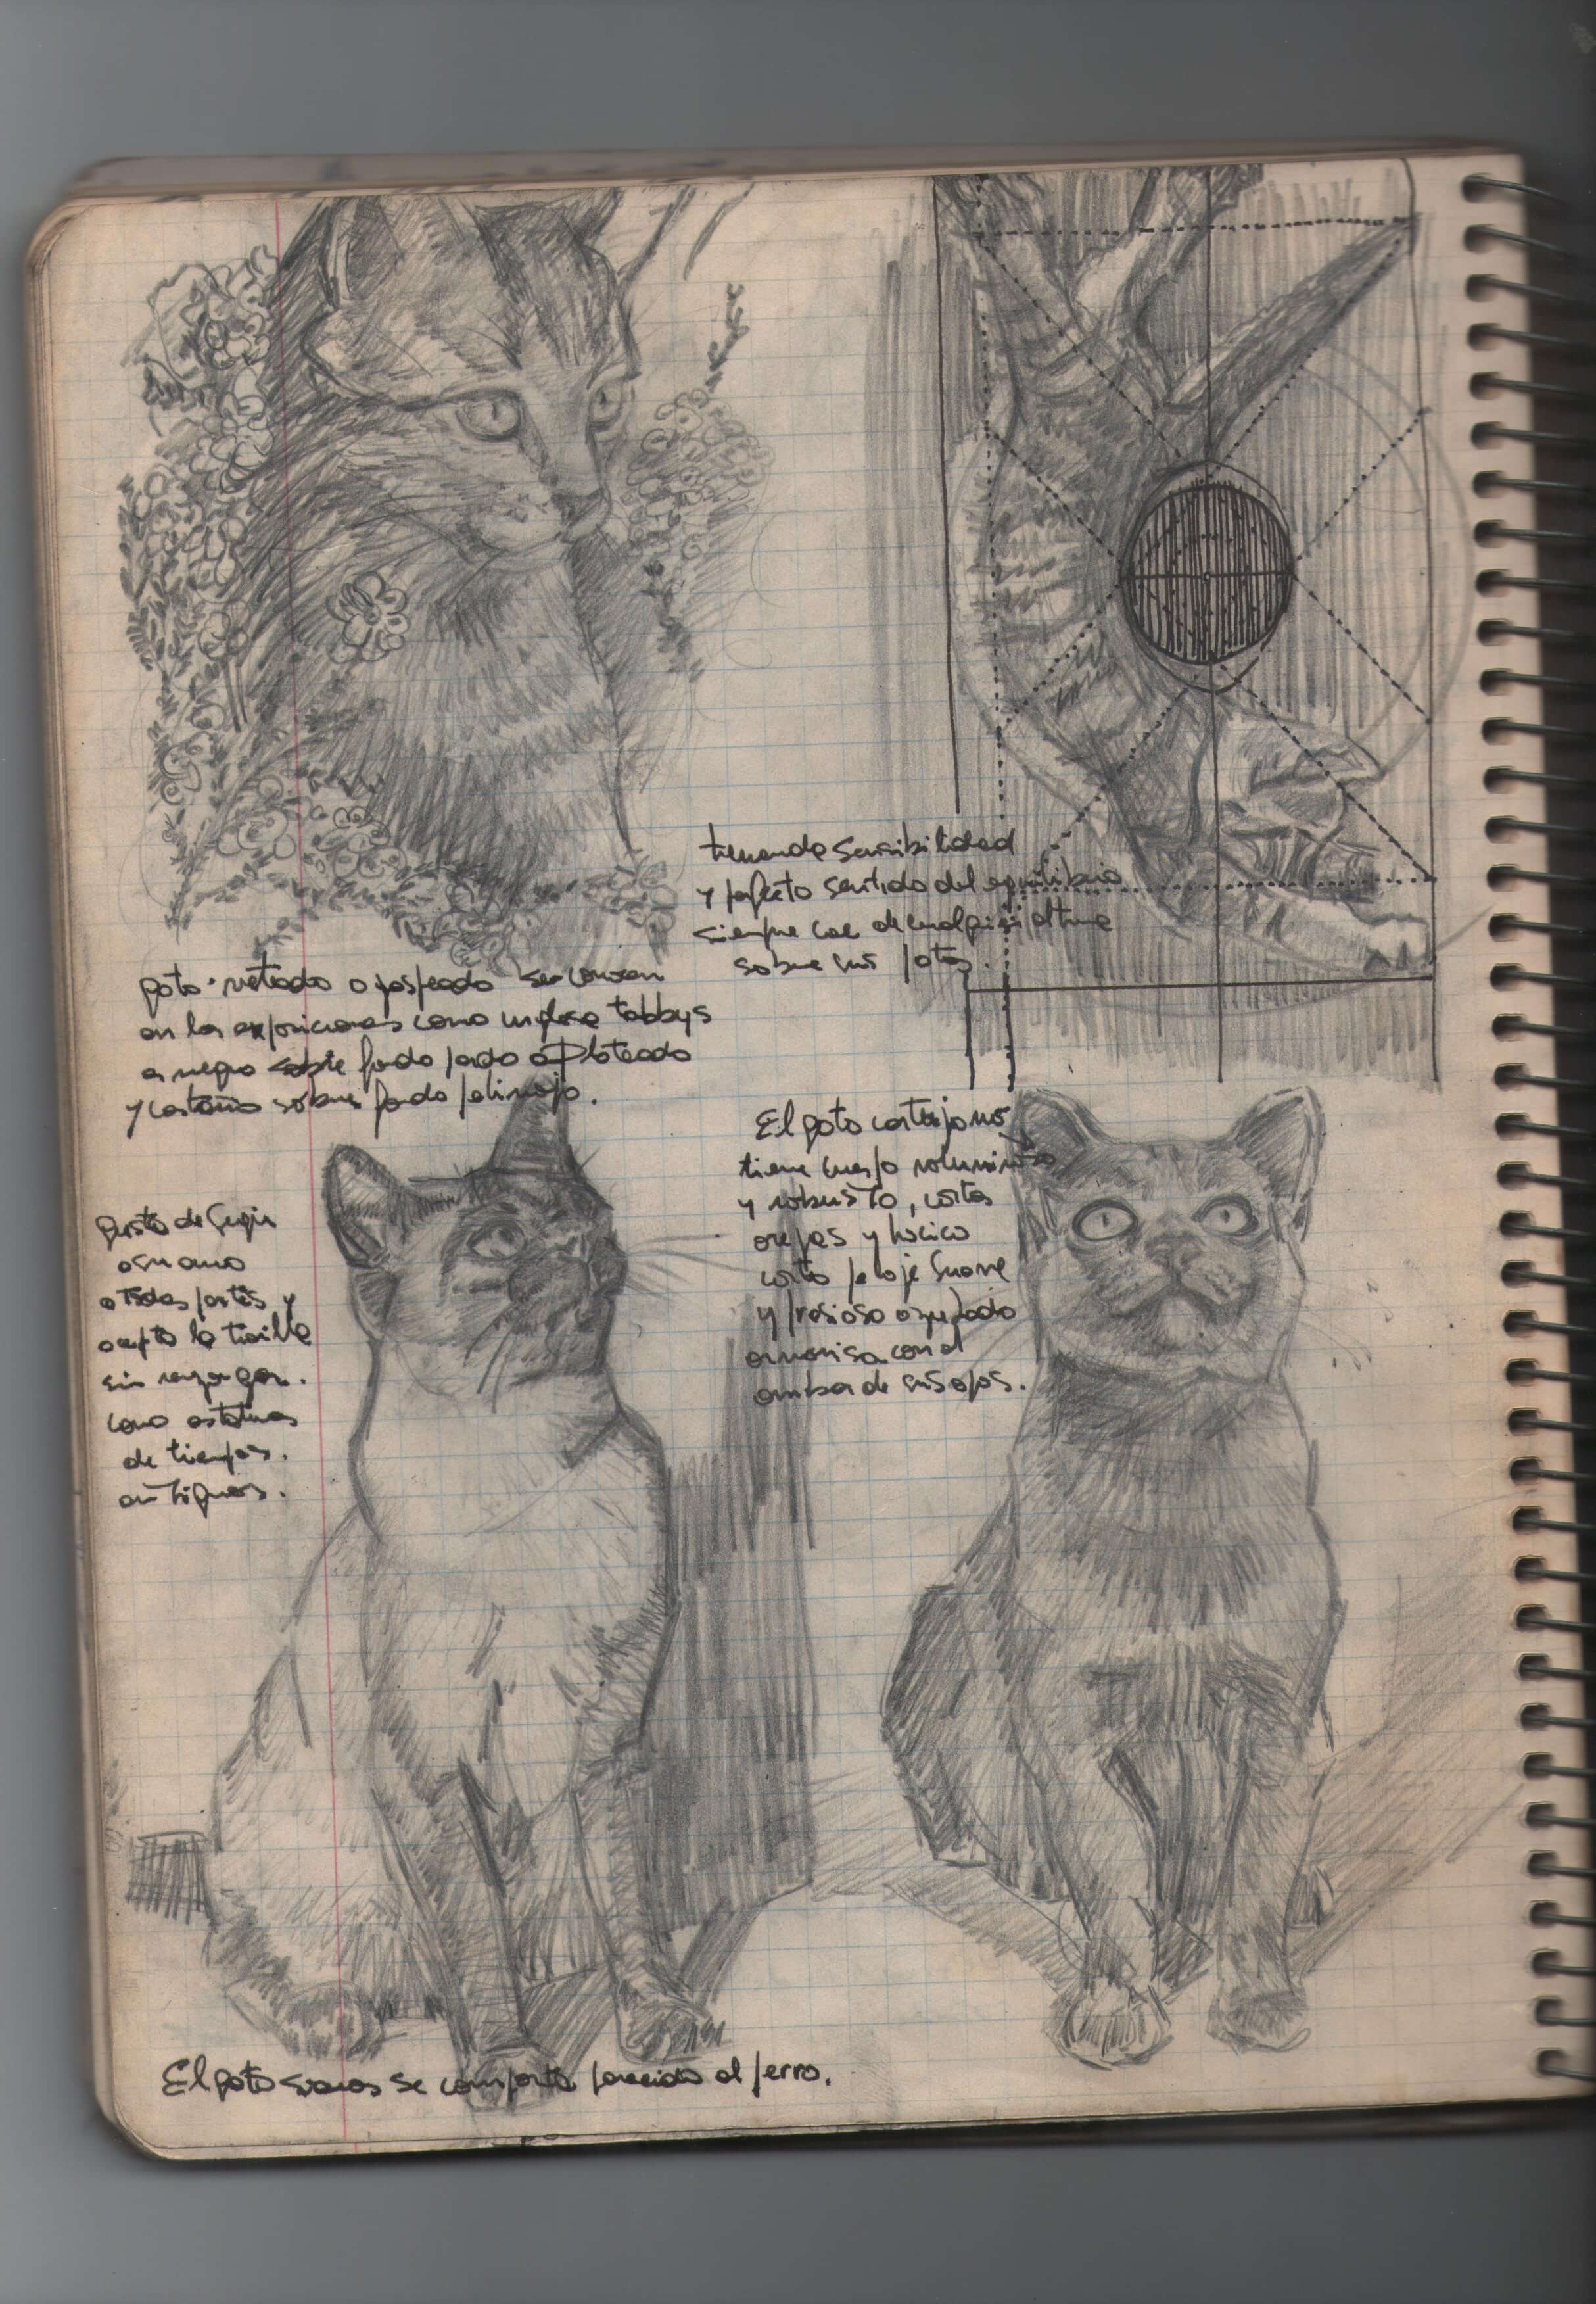 tremenda sensibilidad
y perfecto sentido del equilibrio
siempre cae de cualquier altura
sobre sus patas.
gato veteado o jaspeado se conocen
en las exposiciones como inglese tabbys
a negro sobre fondo pardo o Plateado
y castaño sobre fondo pelirrojo.
El gato cartujano
tiene cuerpo voluminoso
y robusto, cortas
orejas y hocico
corto pelaje suave
y presioso azulado
armonisa con el
ambar de sus ojos.
gusta de seguir
a su amo
a todas partes y
acepta la trailla
sin rezongar.
como estatuas
de tiempos.
antiguos.
El gato siames se comporta parecido al perro.